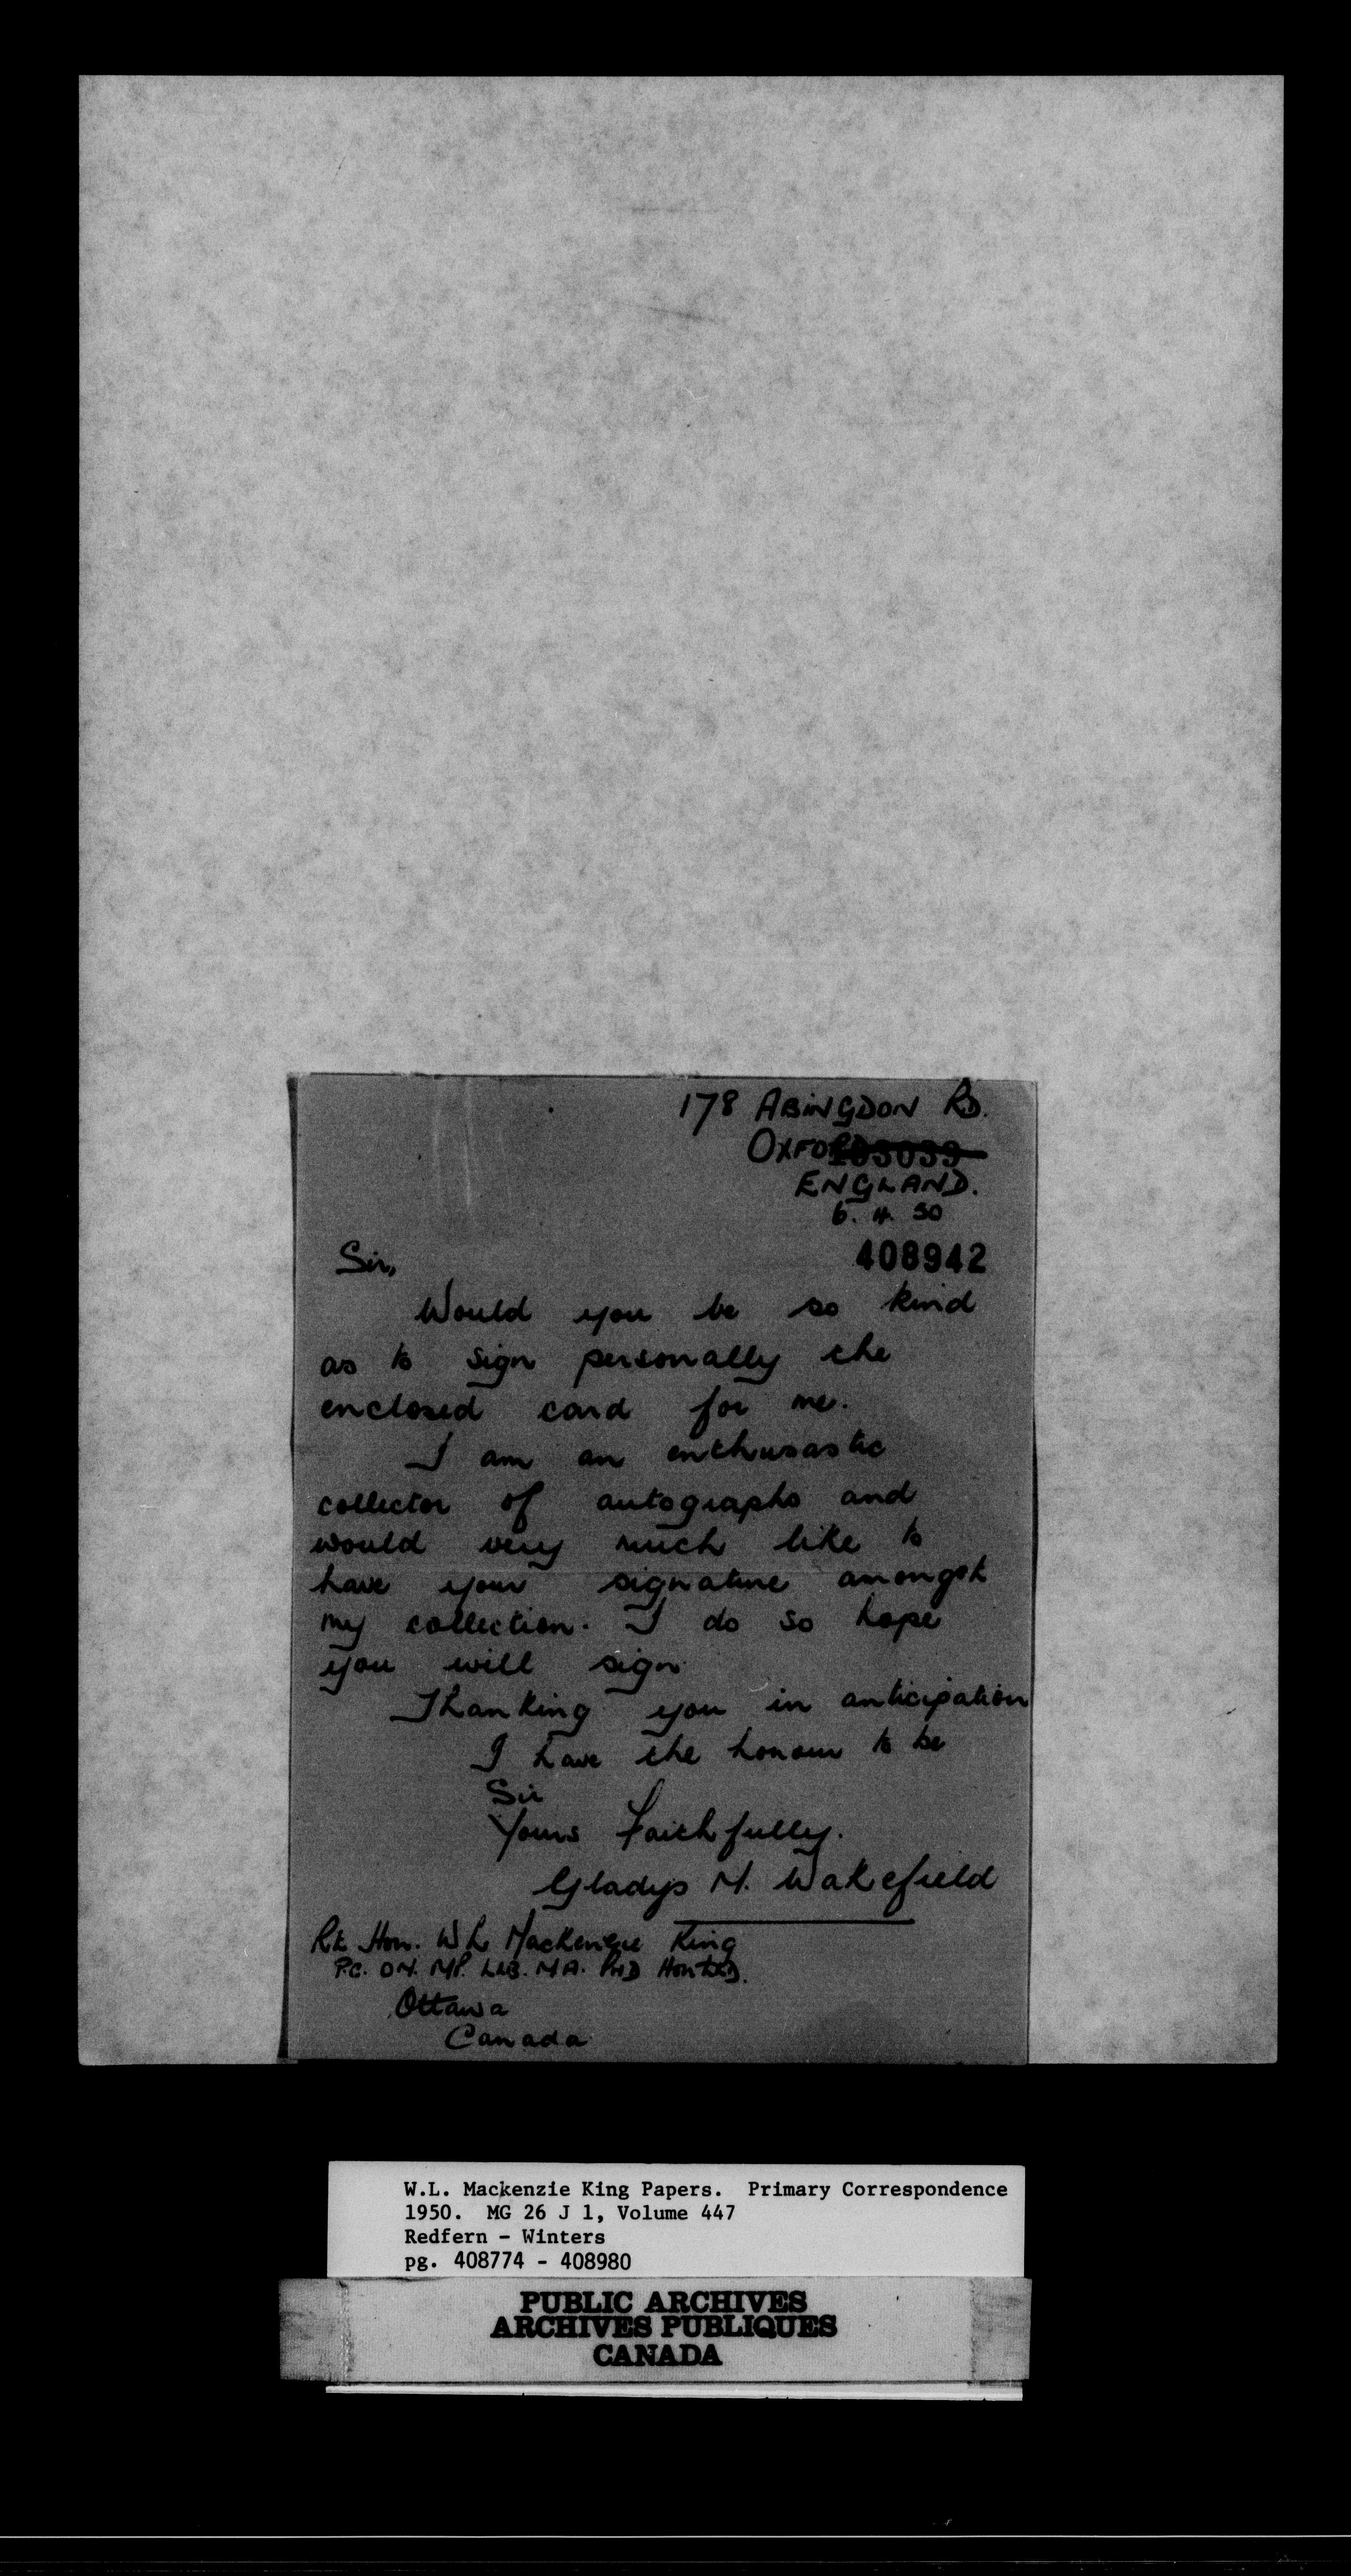 178 ABINGDON RD.
OXFORD
ENGLAND.
6. 4. 50
408942
Sir,
Would you be so kind
as to sign personally the
enclosed card for me.
I am an enthusastic
collector of autographs and
would very much like to
have your signature amongst
my collection. I do so hope
you will sign.
Thanking you in anticipation
I have the honour to be
Sir
Yours Faithfully.
Gladys M. Wakefield
Rt Hon. W L Mackenzie King
P.C. O.M. M.P. LLB. M.A. PHD Hon LLD.
Ottawa
Canada
W.L. Mackenzie King Papers. Primary Correspondence
1950. MG 26 J 1, Volume 447
Redfern - Winters
pg. 408774 - 408980
PUBLIC ARCHIVES
ARCHIVES PUBLIQUES
CANADA